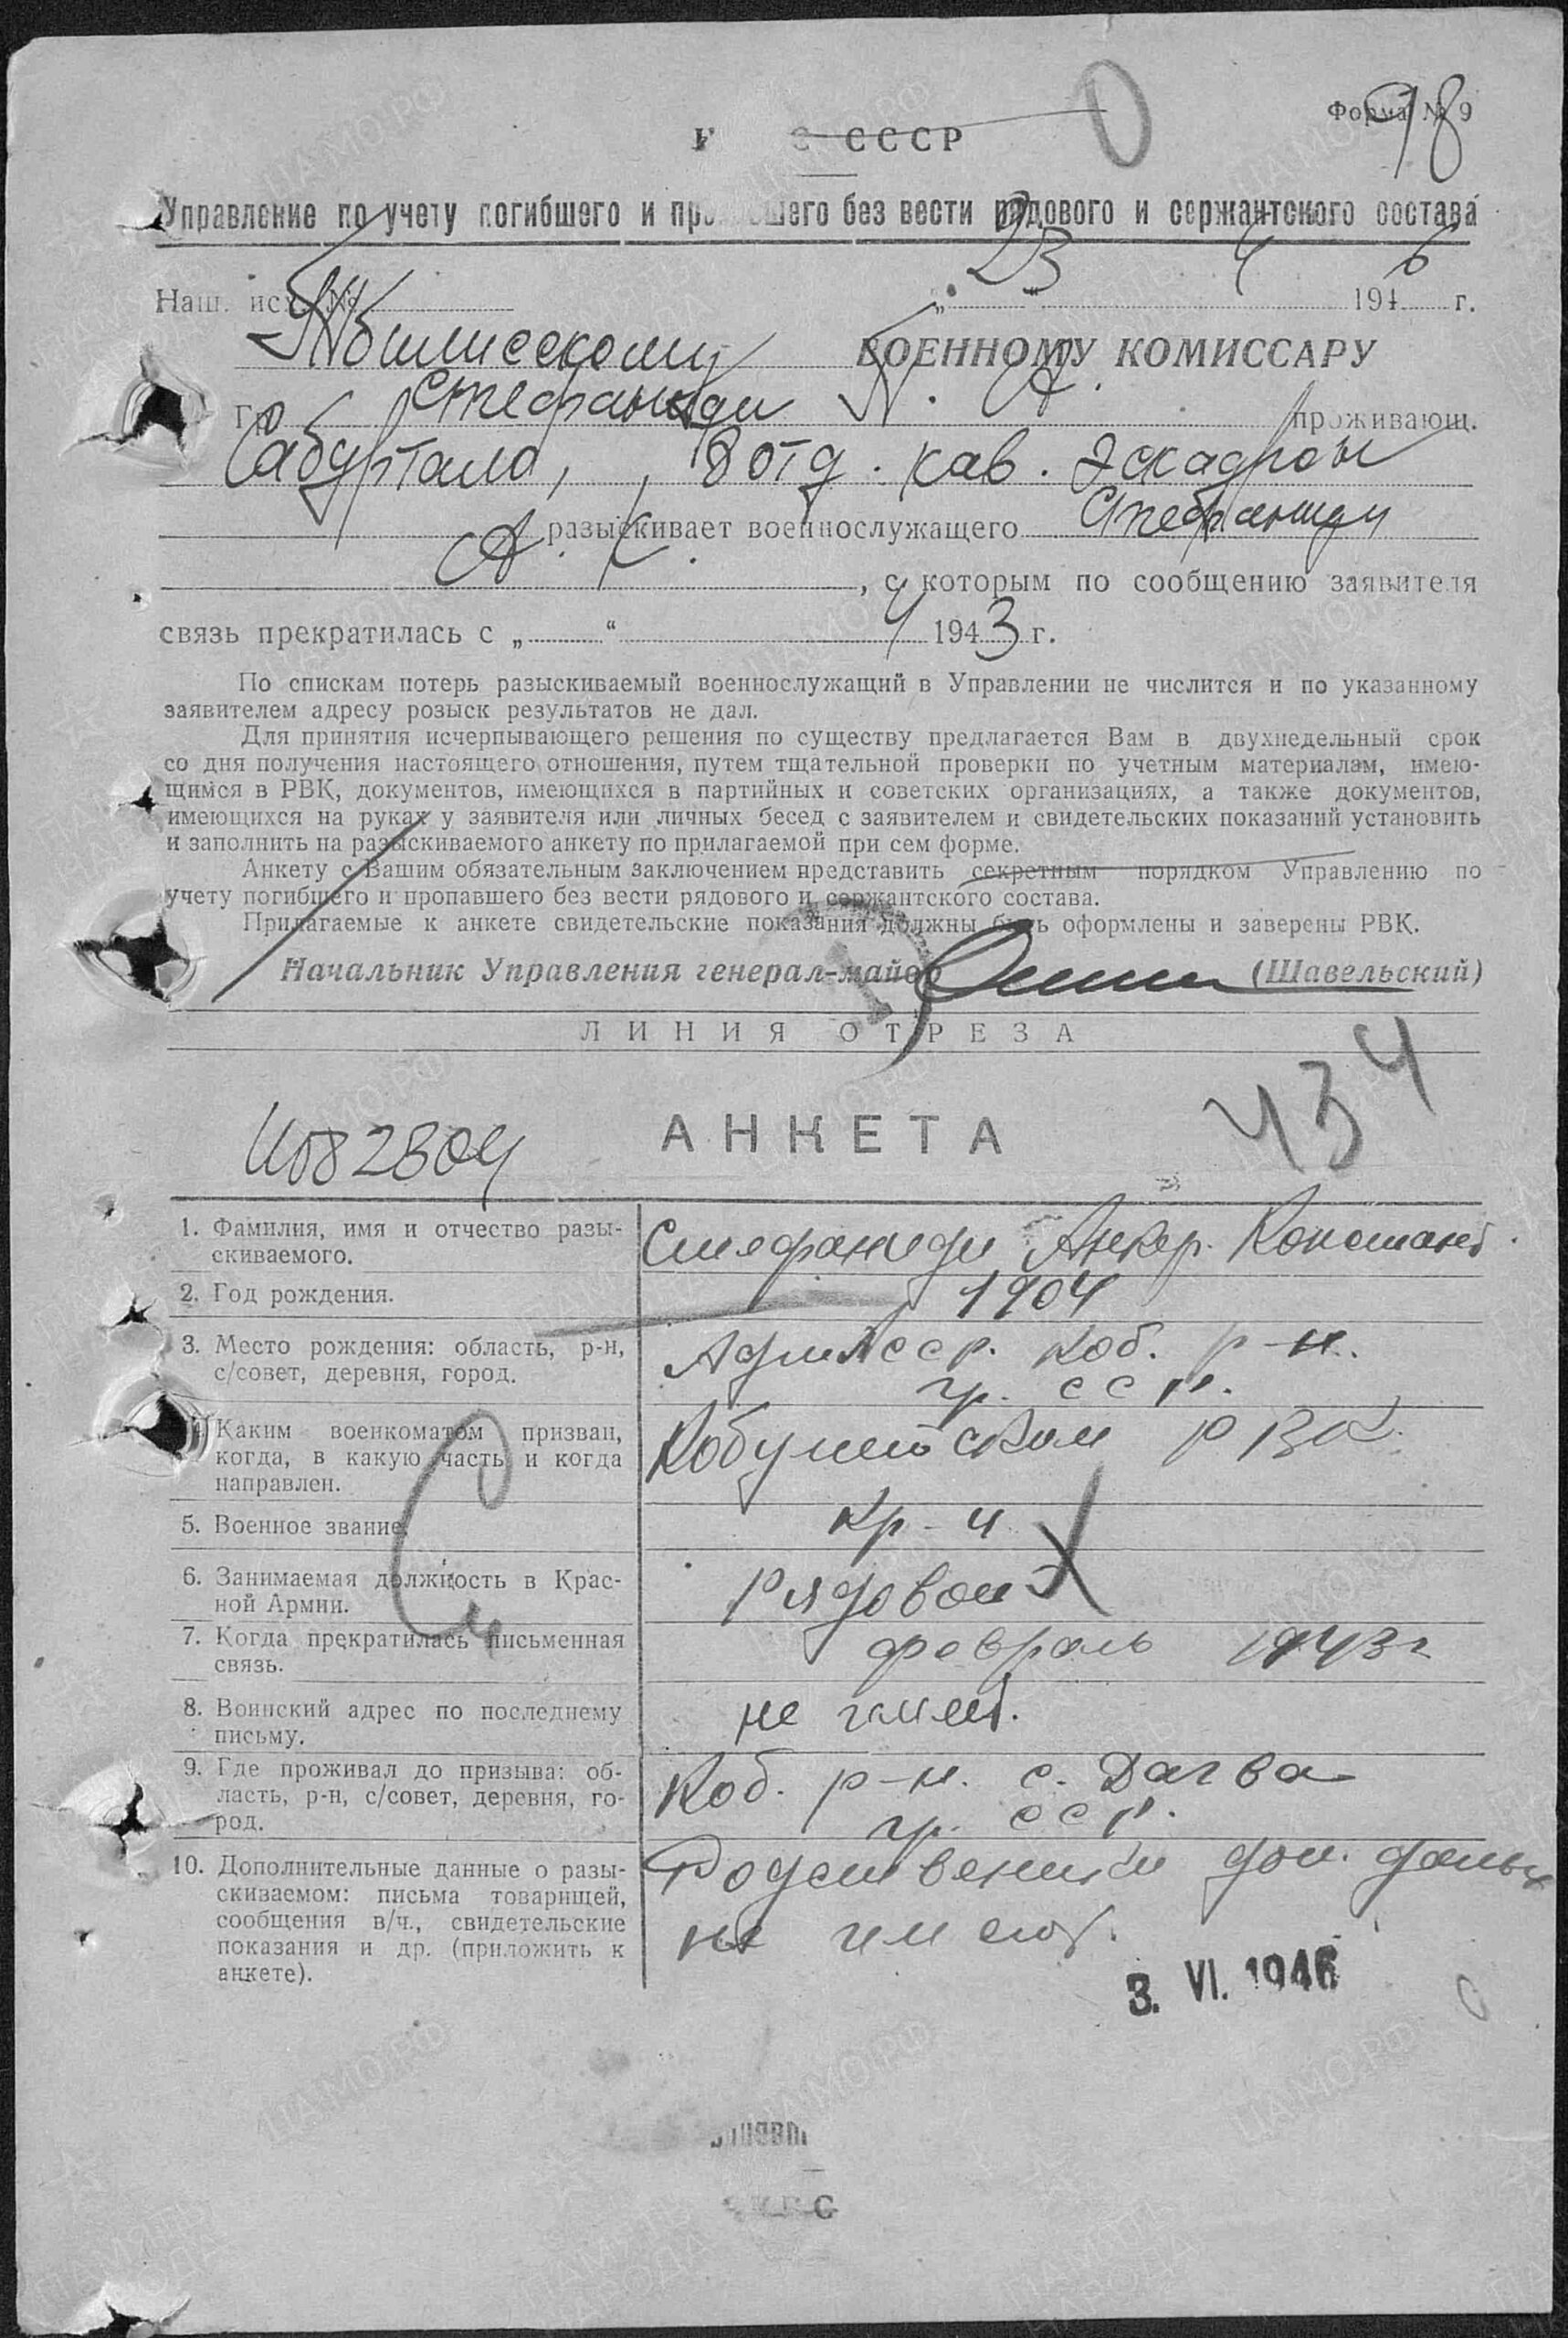 Форма № 9
98
СССР
Управление по учету погибшего и пр шего без вести рядового и сержантского состава
Наш. исх. №
„ 23 “ 4 1946 г.
Тбилисскому ВОЕННОМУ КОМИССАРУ
Гр. Стефаниди П. А. проживающ.
Сабуртало, 8 отд. кав. эскадрон
разыскивает военнослужащего Стефаниди
А. К. , с которым по сообщению заявителя
связь прекратилась с „ “ 4 1943 г.
По спискам потерь разыскиваемый военнослужащий в Управлении не числится и по указанному
заявителем адресу розыск результатов не дал.
Для принятия исчерпывающего решения по существу предлагается Вам в двухнедельный срок
со дня получения настоящего отношения, путем тщательной проверки по учетным материалам, имею-
щимся в РВК, документов, имеющихся в партийных и советских организациях, а также документов,
имеющихся на руках у заявителя или личных бесед с заявителем и свидетельских показаний установить
и заполнить на разыскиваемого анкету по прилагаемой при сем форме.
Анкету с Вашим обязательным заключением представить секретным порядком Управлению по
учету погибшего и пропавшего без вести рядового и сержантского состава.
Прилагаемые к анкете свидетельские показания должны быть оформлены и заверены РВК.
Начальник Управления генерал-майор (Шавельский)
ЛИНИЯ ОТРЕЗА
434
АНКЕТА
И082804
1. Фамилия, имя и отчество разы-
скиваемого.
Стефаниди Констант.
2. Год рождения.
1904
3. Место рождения: область, р-н,
с/совет, деревня, город.
Адж АССР. Коб. р-н.
гр. ССР.
4. Каким военкоматом призван,
когда, в какую часть и когда
направлен.
Кобулетским РВК.
5. Военное звание.
кр-ц
6. Занимаемая должность в Крас-
ной Армии.
Рядовой
7. Когда прекратилась письменная
связь.
февраль 1943г
8. Воинский адрес по последнему
письму.
не имеет.
9. Где проживал до призыва: об-
ласть, р-н, с/совет, деревня, го-
род.
Коб. р-н. с. Дагва
гр. ССР.
10. Дополнительные данные о разы-
скиваемом: письма товарищей,
сообщения в/ч., свидетельские
показания и др. (приложить к
анкете).
Родственики доп. даных
не имеют.
3. VI. 1946